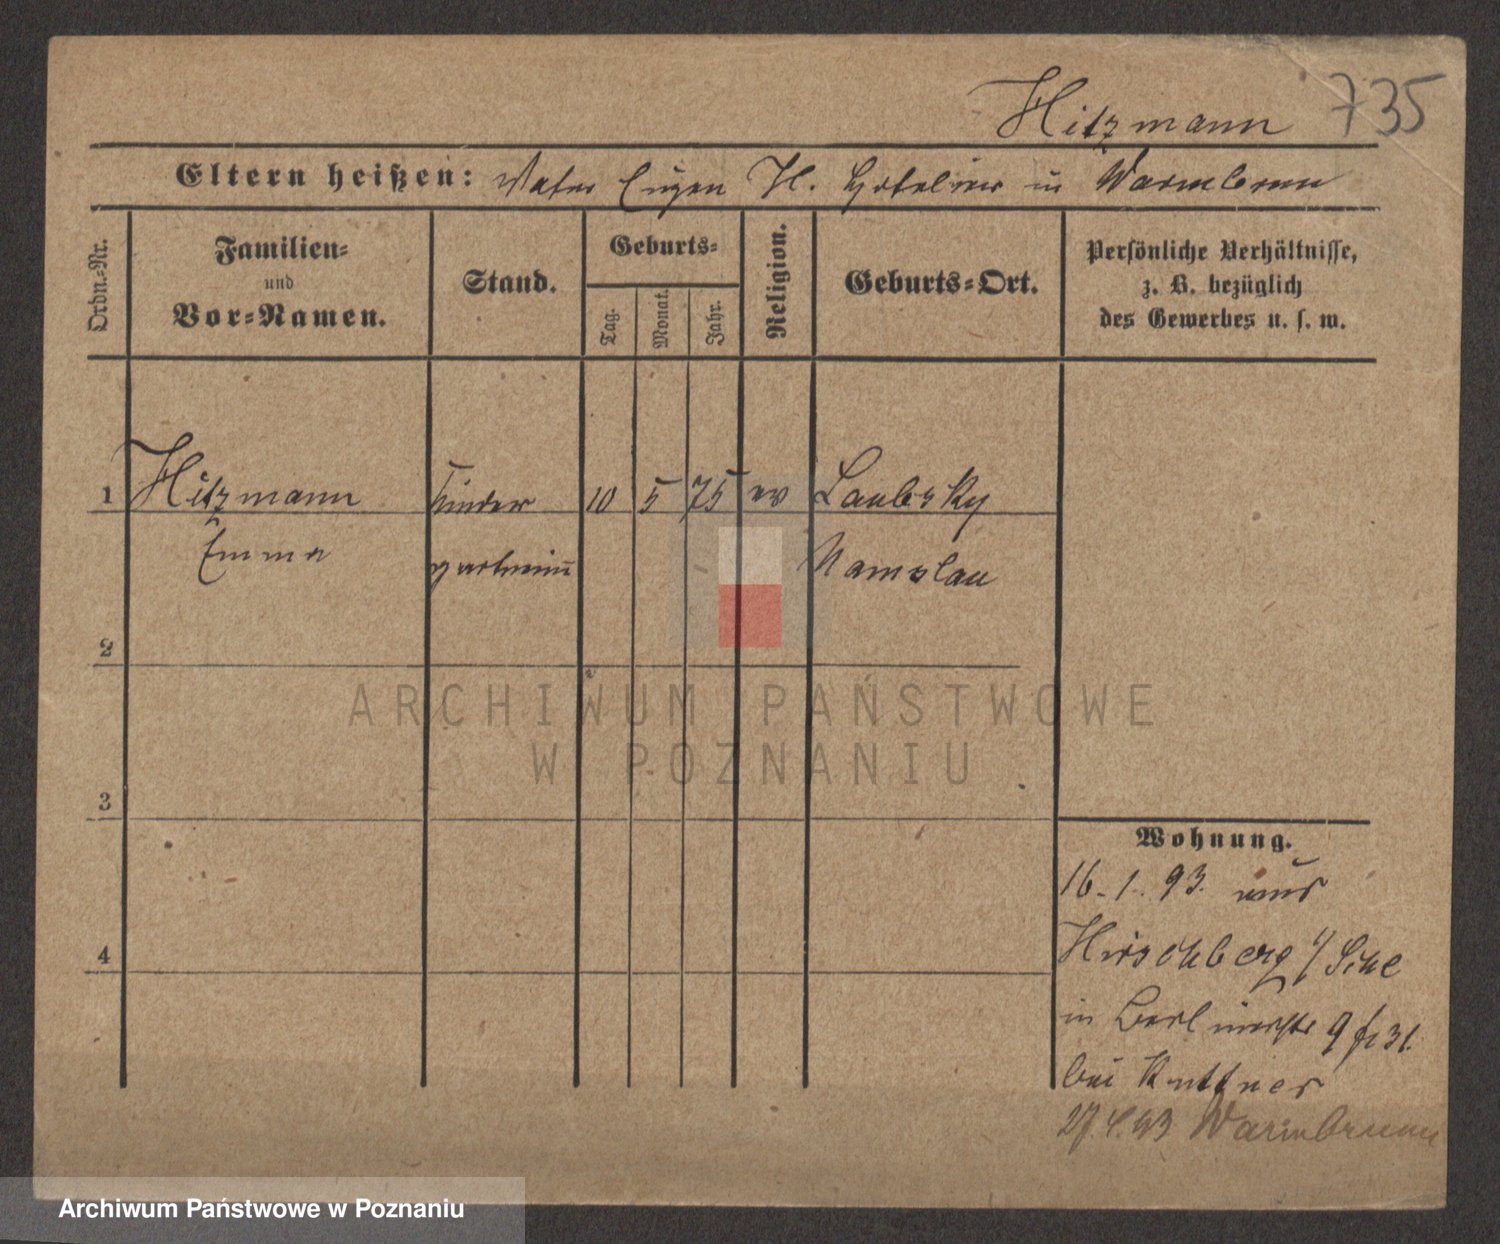 Hitzmann 735
Eltern heißen: Vater Eugen H. Hotelier in Warmbrunn
Ordn.-Nr.
Familien-
und
Vor-Namen.
Stand.
Geburts-
Tag.
Monat.
Jahr.
Religion.
Geburts-Ort.
Persönliche Verhältnisse,
z. B. bezüglich
des Gewerbes u. s. w.
1 Hitzmann Kinder 10 5 75 ev Laubsky
Emma gärtnerin Namslau
2
3
4
Wohnung.
16.1.93. aus
Hirschberg i/ Schle
in Berlinerstr 9 31.
bei Kuttner
27.4.93 Warmbrunn
ARCHIWUM PAŃSTWOWE
W POZNANIU
Archiwum Państwowe w Poznaniu